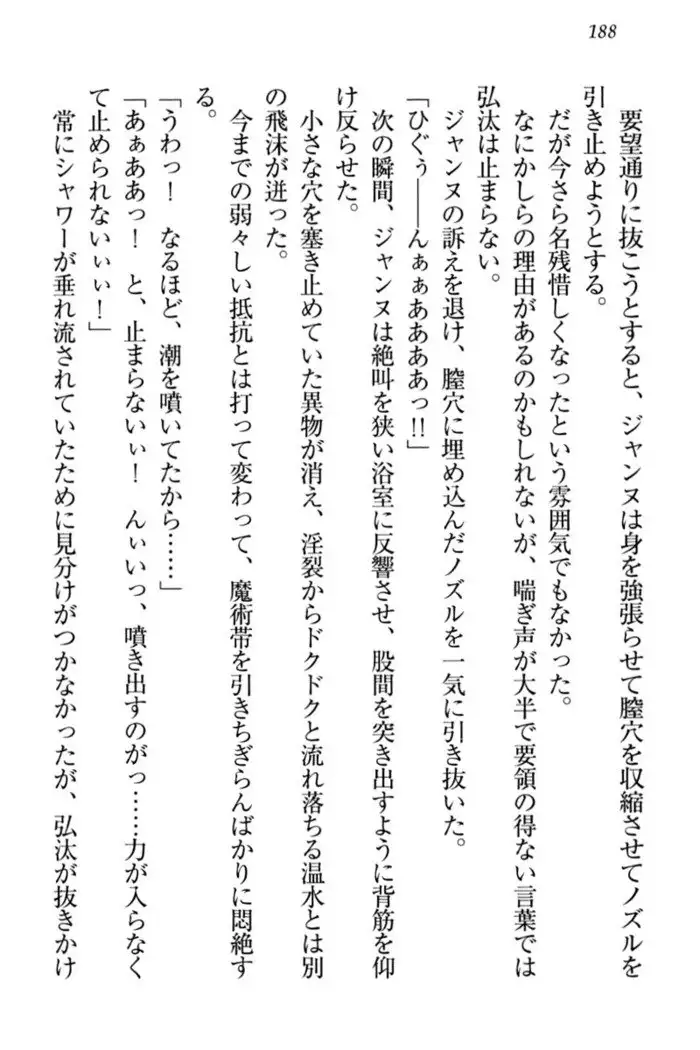 188
要望通りに抜こうとすると、ジャンヌは身を強張らせて膣穴を収縮させてノズルを
引き止めようとする。
だが今さら名残惜しくなったという雰囲気でもなかった。
なにかしらの理由があるのかもしれないが、喘ぎ声が大半で要領の得ない言葉では
弘汰は止まらない。
ジャンヌの訴えを退け、膣穴に埋め込んだノズルを一気に引き抜いた。
「ひぐぅ――んぁぁああああっ!!」
次の瞬間、ジャンヌは絶叫を狭い浴室に反響させ、股間を突き出すように背筋を仰
け反らせた。
小さな穴を塞き止めていた異物が消え、淫裂からドクドクと流れ落ちる温水とは別
の飛沫が迸った。
今までの弱々しい抵抗とは打って変わって、魔術帯を引きちぎらんばかりに悶絶す
る。
「うわっ！　なるほど、潮を噴いてたから……」
「あぁああっ！　と、止まらないぃ！　んぃいっ、噴き出すのがっ……力が入らなく
て止められないぃぃ！」
常にシャワーが垂れ流されていたために見分けがつかなかったが、弘汰が抜きかけ